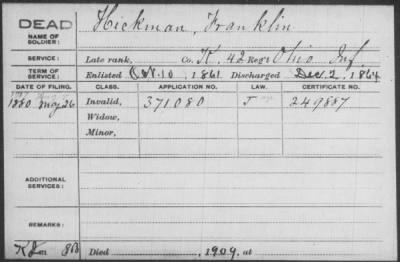 DEAD Hickman, Franklin
NAME OF SOLDIER:
SERVICE: Late rank, Co. K, 42 Reg't Ohio Inf.
TERM OF SERVICE: Enlisted Oct. 10, 1861 Discharged Dec. 2, 1864
DATE OF FILING. CLASS. APPLICATION NO. LAW. CERTIFICATE NO.
1880 May 26 Invalid, 371080 J 249887
Widow,
Minor,
ADDITIONAL SERVICES:
REMARKS:
Died 1909, at